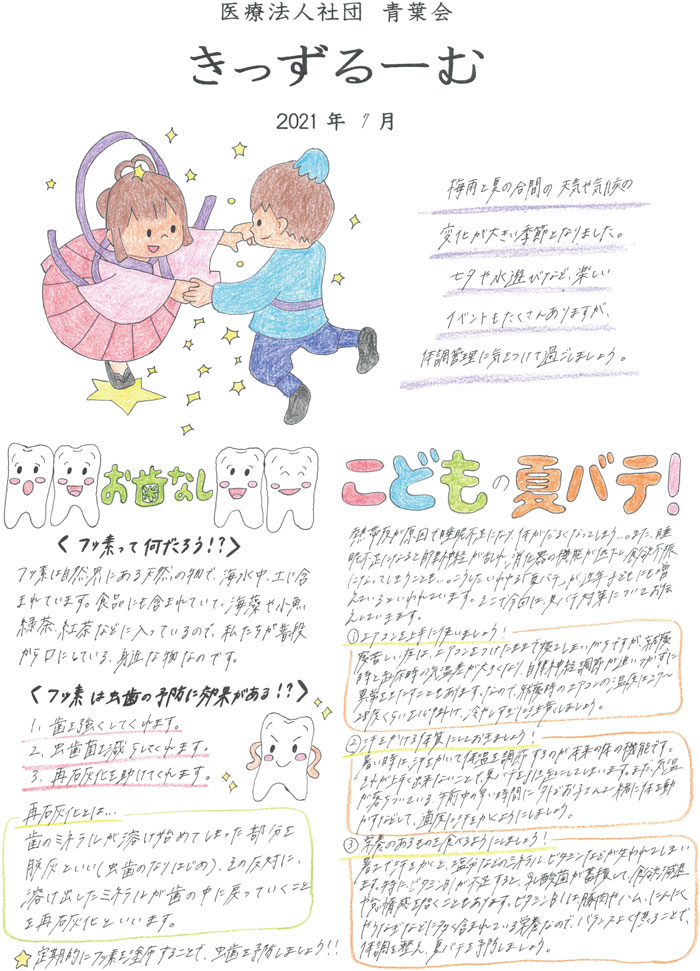 医療法人社団 青葉会
きっずるーむ
2021 年 7 月
梅雨と夏の合間の 天気や気候の
変化が大きい季節となりました。
七夕や水遊びなど、楽しい
イベントもたくさんありますが、
体調管理に気をつけて過ごしましょう。
お歯なし
〈 フッ素って何だろう!?〉
フッ素は自然界にある天然の物で、海水中、土に含
まれています。食品にも含まれていて、海藻や小魚
緑茶、紅茶などに入っているので、私たちが普段
から口にしている、身近な物なのです。
〈フッ素 は虫歯の予防に効果がある!?〉
1. 歯を強くしてくれます。
2. 虫歯菌を減らしてくれます。
3. 再石灰化を助けてくれます。
再石灰化とは…
歯のミネラルが溶け始めてしまった部分を
脱灰といい(虫歯のなりはじめ)、その反対に、
溶け出したミネラルが歯の中に戻っていくこと
を再石灰化といいます。
定期的にフッ素を塗布することで、虫歯を予防しましょう!!
こどもの夏バテ!
熱帯夜が原因で睡眠不足になり、体がだるくなってしまう…。また、睡
眠不足になると自律神経が乱れ、消化器の機能が低下し食欲不振
になってしまうことも…。こうしたいわゆる「夏バテ」が近年子どもにも増
えているといわれています。そこで今回は、夏バテ対策についてお伝
えしていきます。
①エアコンを上手に使いましょう!
寝苦しい夜は、エアコンをつけたままで寝てしまいがちですが、就寝
時と起床時の気温差が大きくなり、自律神経の調節が追いつかずに
異常をきたすこともあります。なので、就寝時のエアコンの温度は27〜
28度くらいを心掛け、冷やしすぎに注意しましょう。
②汗をかける体質にしておきましょう!
暑い時は、汗をかいて体温を調節するのが本来の体の機能です。
それが上手く出来ないことで、夏バテを引き起こしてしまいます。まだ、気温
が落ちついている、午前中の早い時間に外でお子さんと一緒に体を動
かすなどして、適度に汗をかくようにしましょう。
③栄養のあるものを食べるようにしましょう!
暑さで汗をかくと、塩分などのミネラル、ビタミンなどが失われてしまい
ます。特に、ビタミンB1が不足すると、乳酸菌が蓄積して、食欲減退
や倦怠感を招くこともあります。ビタミンB1は豚肉やハム、にんにく
やうなぎなどに多く含まれている栄養なので、バランスよく摂ることで、
体調を整え、夏バテを予防しましょう。